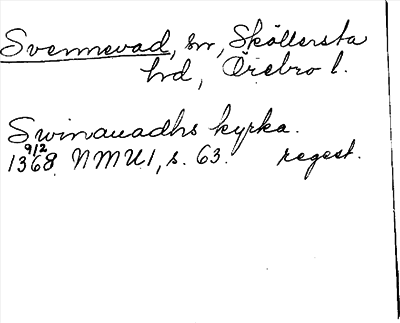 Svennevad, sn, Sköllersta
hd, Örebro l.
Swinauadhs kyrka.
9/2
1368. NMU 1, s. 63. regest.